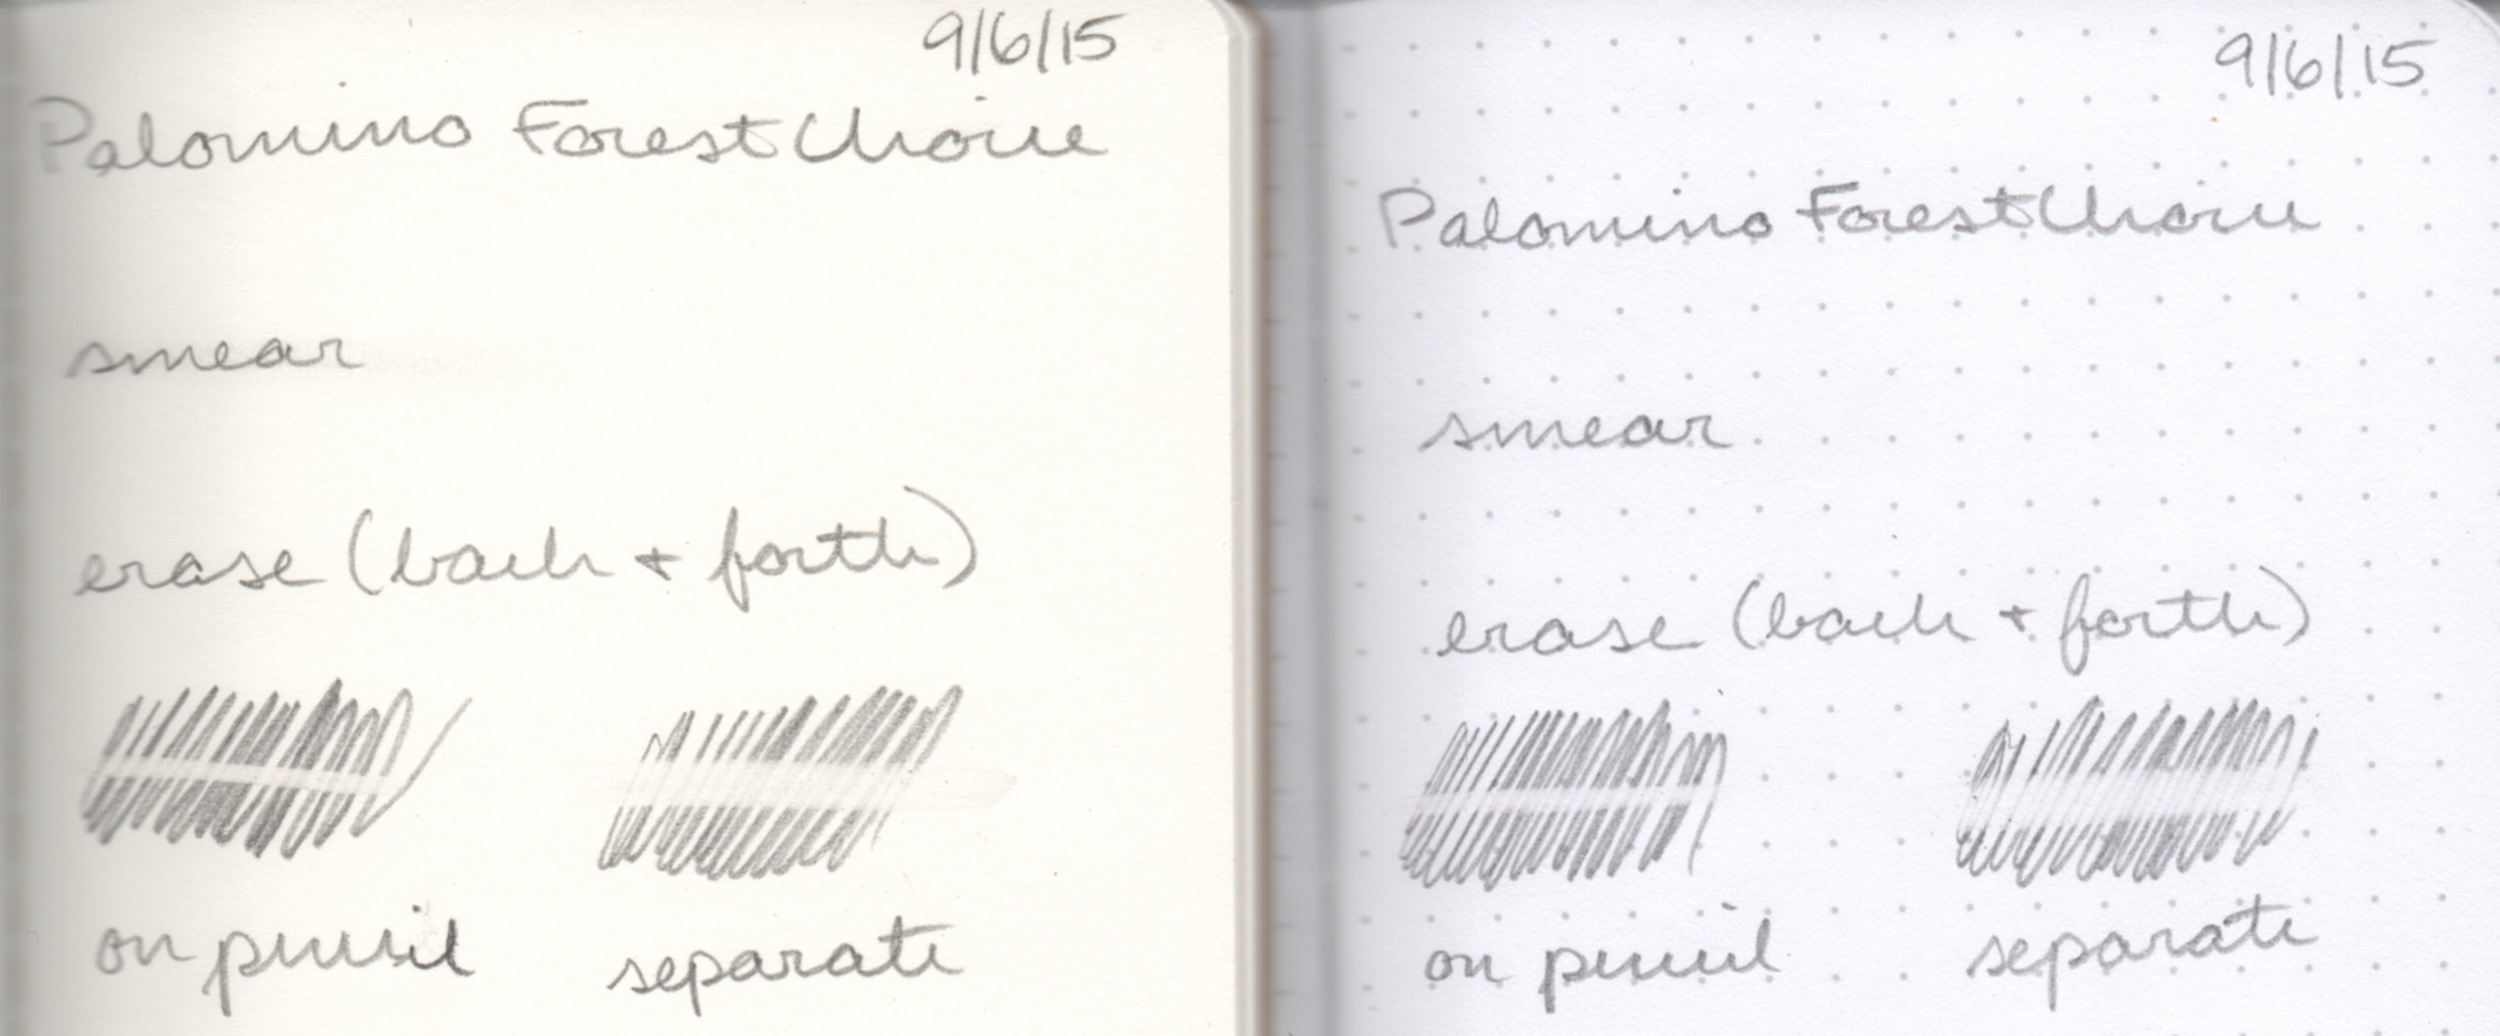 9/6/15
Palomino ForestChoice
smear
erase (back + forth)
on pencil separate
9/6/15
Palomino ForestChoice
smear
erase (back + forth)
on pencil separate